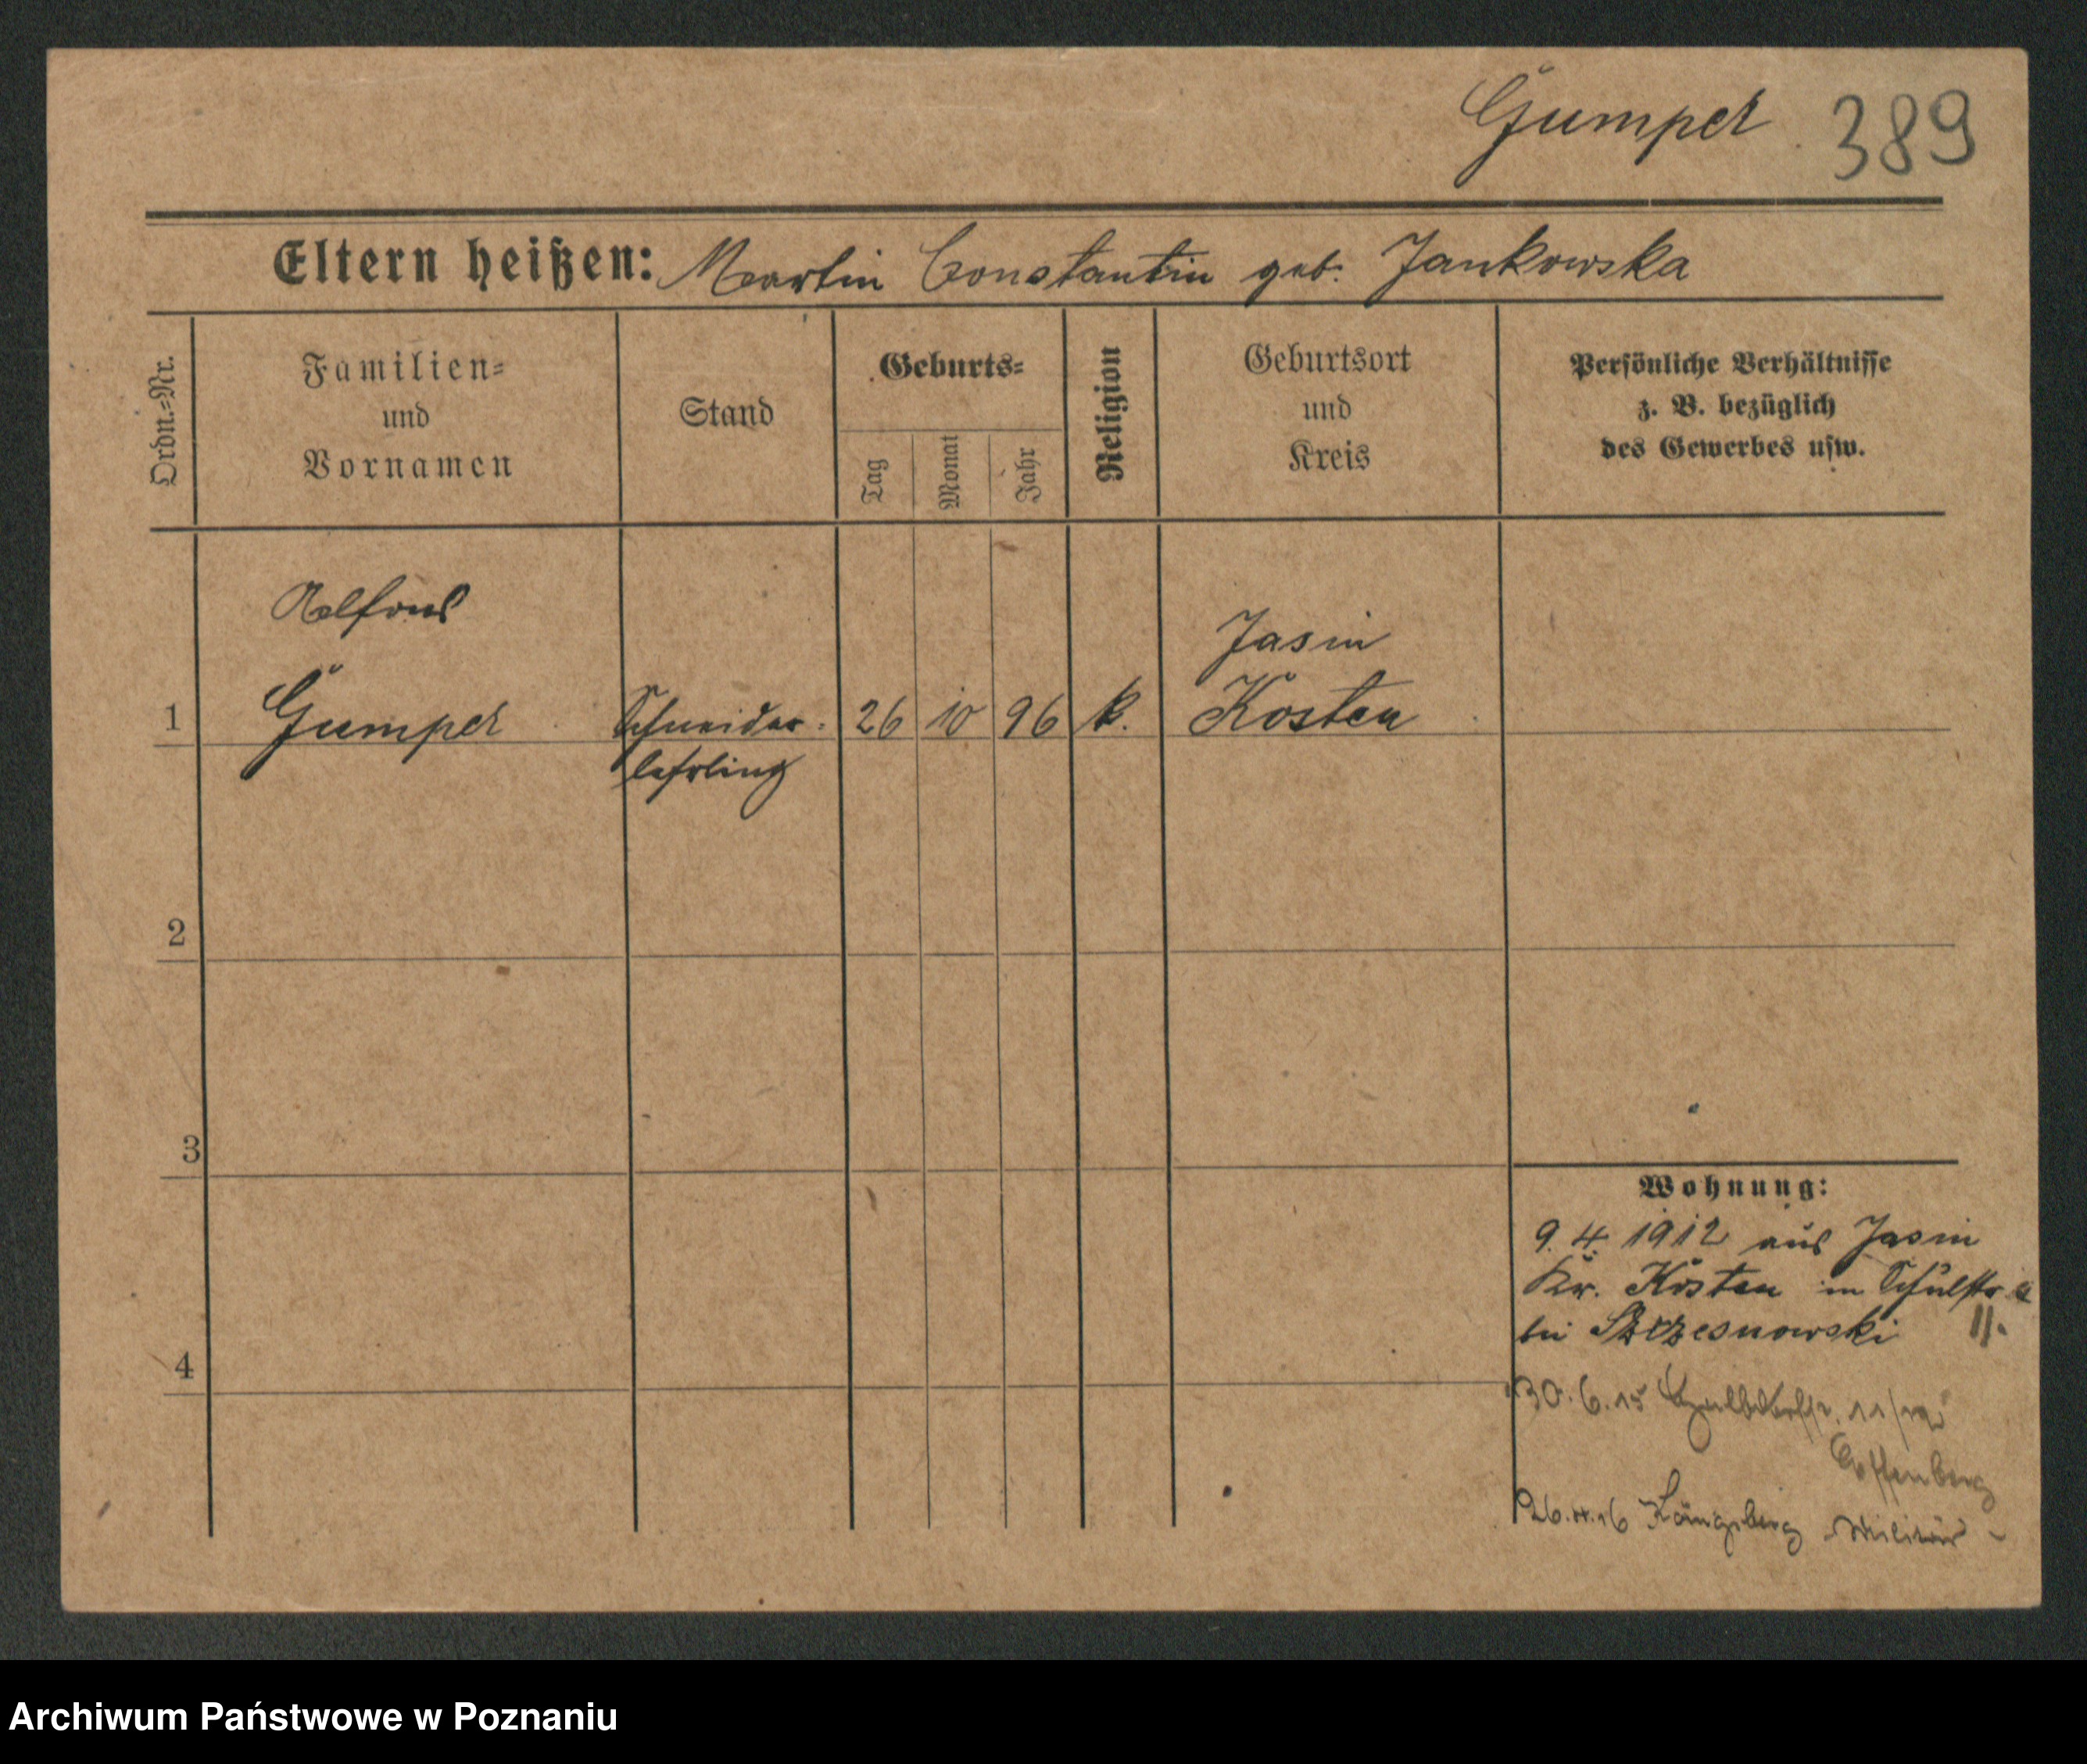 Gumpel 389
Eltern heißen: Martin Constantin geb. Jankowska
Ordn.=Nr.
Familien=
und
Vornamen
Stand
Geburts=
Tag
Monat
Jahr
Religion
Geburtsort
und
Kreis
Persönliche Verhältnisse
z. B. bezüglich
des Gewerbes usw.
Alfons
Jasin
1 Gumpel Schneider= 26 10 96 k. Kosten
lehrling
2
3
Wohnung:
9. 4. 1912 aus Jasin
Kr. Kosten in Schulstr
bei 11.
4
30. 6. 15
26. 4. 16 Königsberg Militär
Archiwum Państwowe w Poznaniu